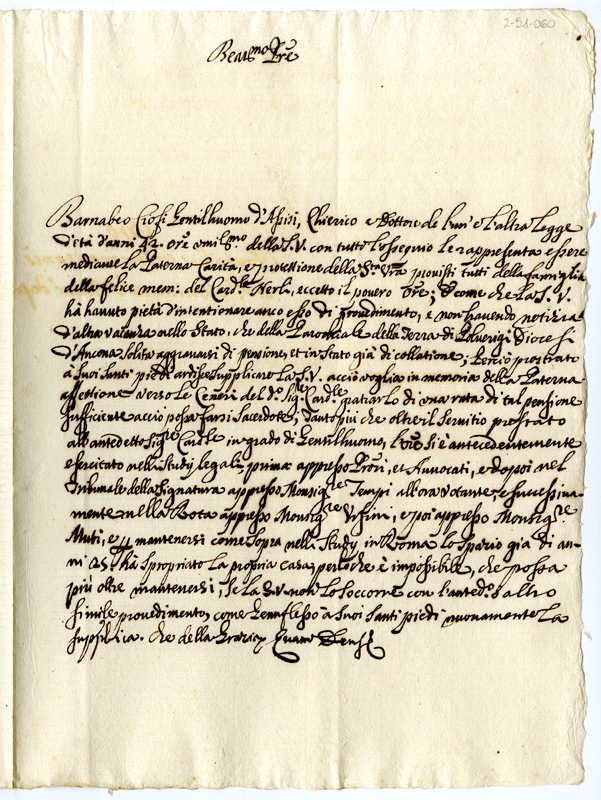 2-51-060
Beat.mo Pre
Barnabeo Ciofi Gentilhuomo d'Assisi, Chierico e Dottore de l'un' e l'altra legge
d'età d'anni 42. ore humil.mo della S.V. con tutto l'ossequio le rappresenta essere
mediante la Paterna Carità, e protettione della S.tà V.ra provisti tutti della famiglia
della felice mem: del Card.le Nerli, eccetto il povero Ore; E come che la S.V.
hà havuto pietà d'intentionare anco esso di provedimento, e non havendo notitia
d'altra vacanza nello Stato, che della Parochiale della Terra di Polverigi Diocesi
d'Ancona solita aggravarsi di pensione, et in stato già di collatione; Perciò prostrato
à suoi santi piedi ardisce supplicare la S.V. acciò voglia in memoria della Paterna
affettione verso le Ceneri del d.o Sig.r Card.le gratiarlo di una rata di tal pensione
sufficiente acciò possa farsi Sacerdote; Tanto più che oltre il servitio prestato
all'antedetto Sig.re Card.le in grado di Gentilhuomo, l'Ore si è antecedentemente
esercitato nelli Studij legali, prima appresso Pròri, et Avvocati, e dopoi nel
Tribunale della Signatura appresso Monsig.re Tempi all'ora votante, e successiva-
mente nella Rota appresso Monsig.re Ursini, e poi appresso Monsig.re
Muti, e p mantenersi come sopra nelli Studij in Roma lo spatio già di an-
ni 25. hà spropriato la propria casa; perloche è impossibile, che possa
più oltre mantenersi, se la S.V. non lo soccorre con l'anted.o ò altro
simile provedimento, come genuflesso à suoi santi piedi nuovamente la
supplica. Che della gratia, Quam Deus